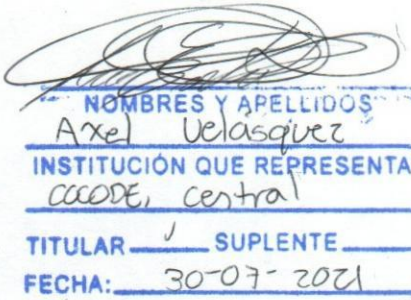 NOMBRES Y APELLIDOS
Axel Velásquez
INSTITUCIÓN QUE REPRESENTA
COCODE, central
TITULAR SUPLENTE
FECHA: 30-07-2021